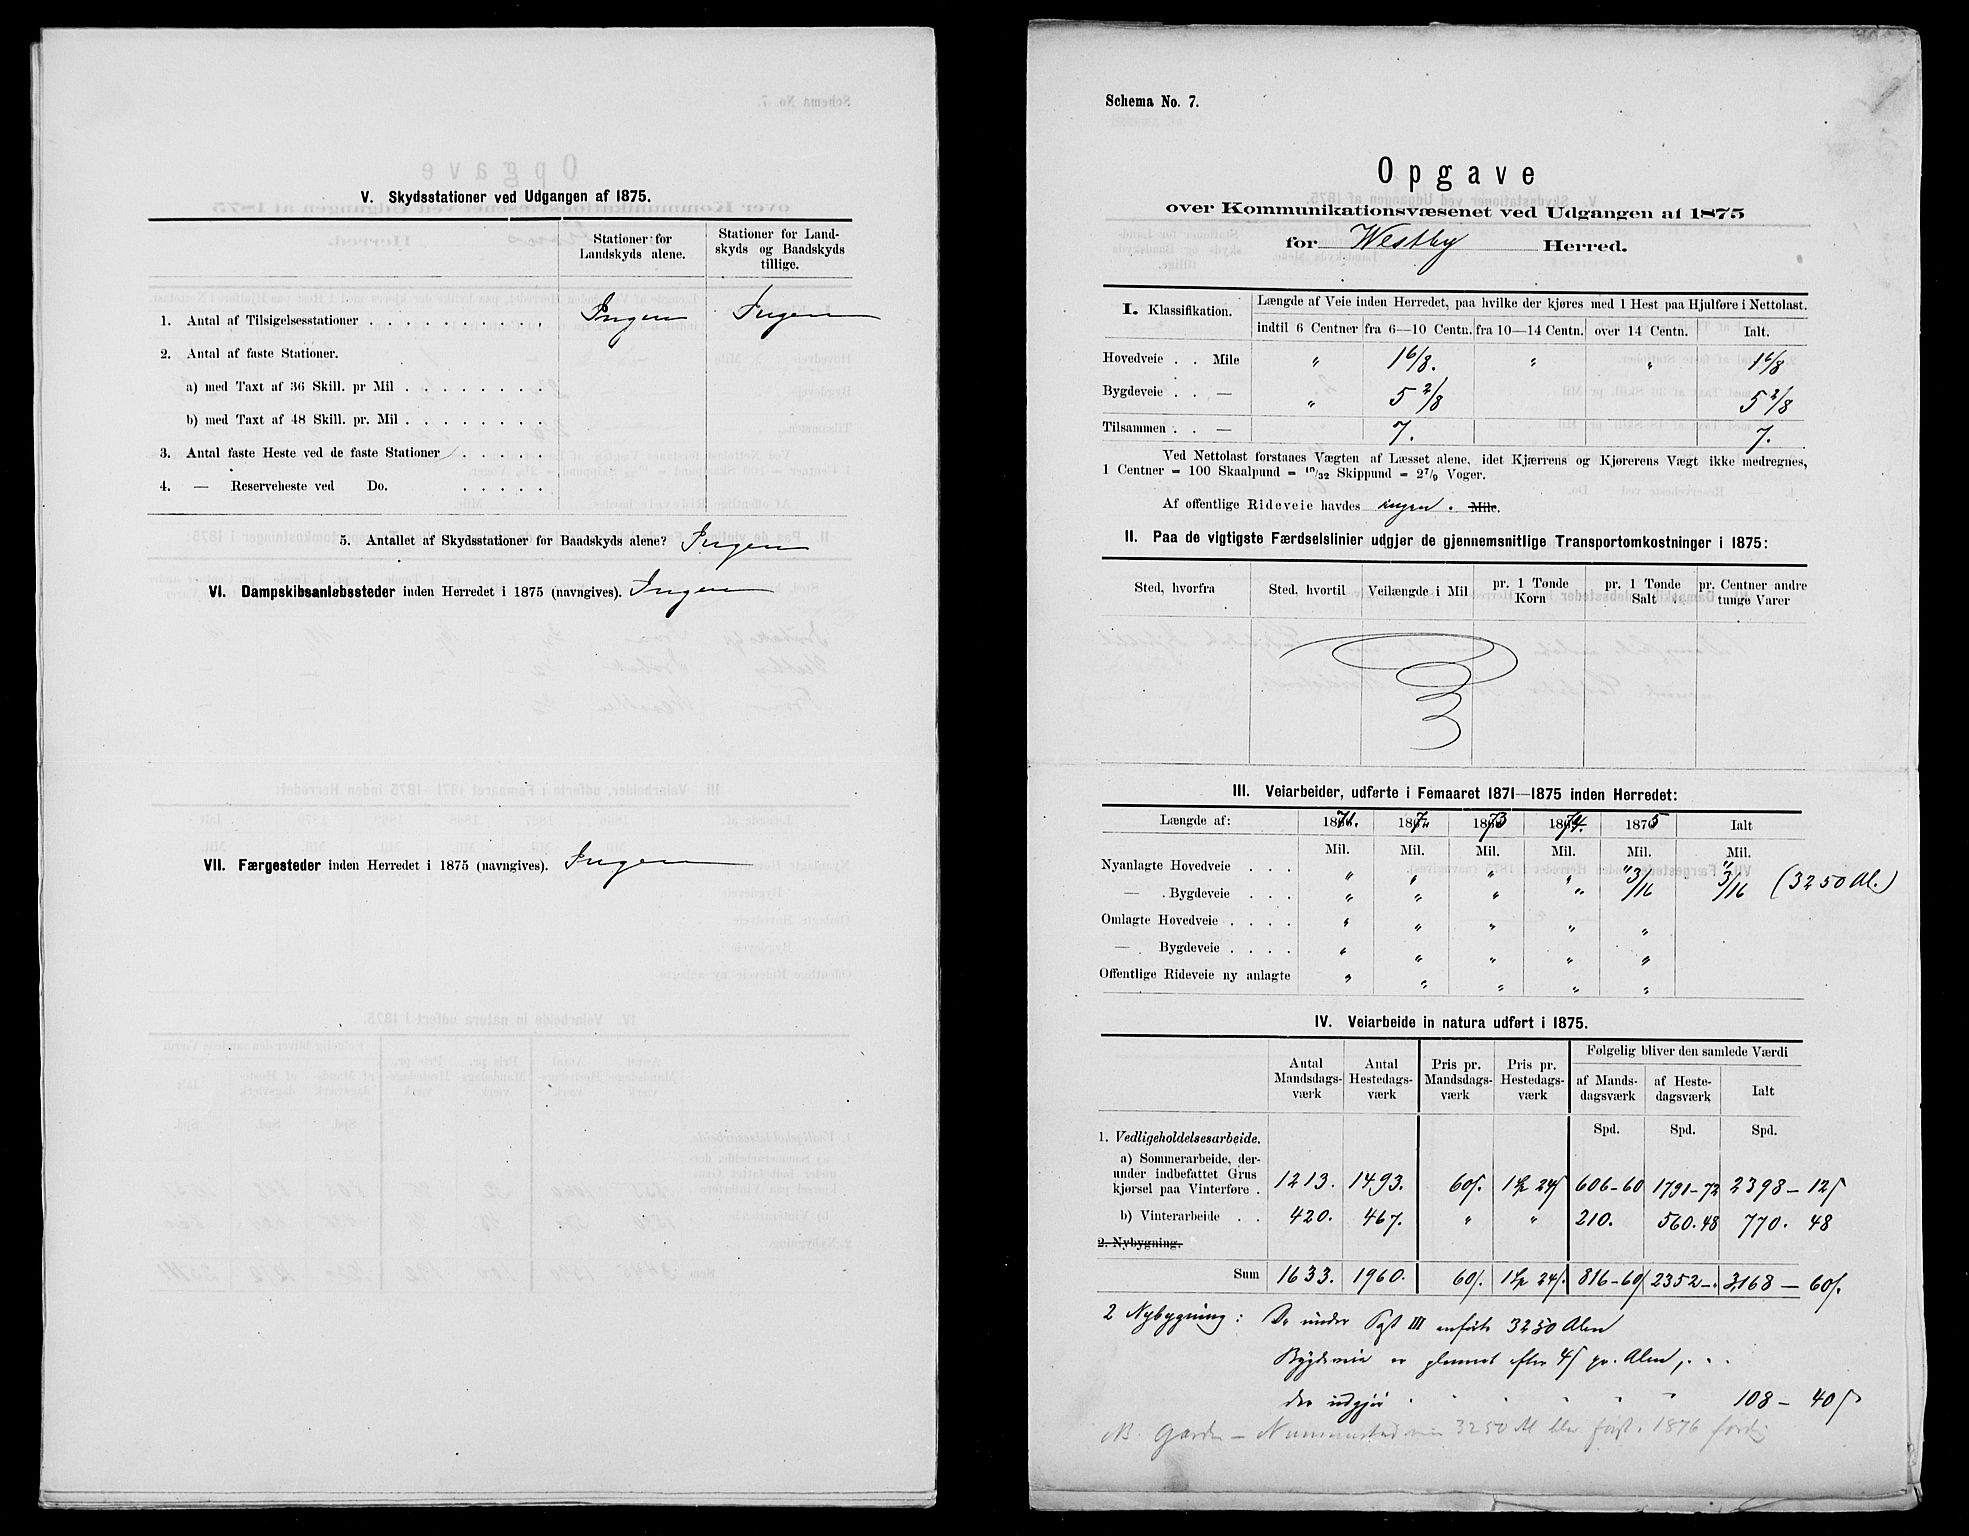 V. Skydsstationer ved Udgangen af 1875.
Stationer for Landskyds alene.
Stationer for Landskyds og Baadskyds tillige.
1. Antal af Tilsigelsesstationer . . . . . . . . . . Ingen Ingen
2. Antal af faste Stationer.
a) med Taxt af 36 Skill. pr Mil . . . . . . . .
b) med Taxt af 48 Skill. pr. Mil . . . . . . . .
3. Antal faste Heste ved de faste Stationer . . . . .
4. — Reserveheste ved Do. . . . . .
5. Antallet af Skydsstationer for Baadskyds alene? Ingen
VI. Dampskibsanløbssteder inden Herredet i 1875 (navngives). Ingen
VII. Færgesteder inden Herredet i 1875 (navngives). Ingen
Schema No. 7.
Opgave
over Kommunikationsvæsenet ved Udgangen af 1875
for Westby Herred.
I. Klassifikation. Længde af Veie inden Herredet, paa hvilke der kjøres med 1 Hest paa Hjulføre i Nettolast.
indtil 6 Centner fra 6—10 Centn. fra 10—14 Centn. over 14 Centn. Ialt.
Hovedveie . . Mile " 1 6/8. " " 1 6/8
Bygdeveie . . — " 5 2/8 5 2/8
Tilsammen . . — 7. 7.
Ved Nettolast forstaaes Vægten af Læsset alene, idet Kjærrens og Kjørerens Vægt ikke medregnes,
1 Centner = 100 Skaalpund = 10/32 Skippund = 2 7/9 Voger.
Af offentlige Rideveie havdes ingen. Mile.
II. Paa de vigtigste Færdselslinier udgjør de gjennemsnitlige Transportomkostninger i 1875:
Sted, hvorfra Sted, hvortil Veilængde i Mil pr. 1 Tønde Korn pr. 1 Tønde Salt pr. Centner andre tunge Varer
III. Veiarbeider, udførte i Femaaret 1871—1875 inden Herredet:
Længde af: 1871. 187 1873 1874. 1875 Ialt
Mil. Mil. Mil. Mil. Mil. Mil.
Nyanlagte Hovedveie . . . " " " " " "
— Bygdeveie . . . " " " " 3/16 3/16 (3250 Al.)
Omlagte Hovedveie . . . . " " " " "
— Bygdeveie . . . . " " " " "
Offentlige Rideveie ny anlagte " " " " "
IV. Veiarbeide in natura udført i 1875.
Antal Mandsdagsværk Antal Hestedagsværk Pris pr. Mandsdagsværk Pris pr. Hestedagsværk Følgelig bliver den samlede Værdi
af Mandsdagsværk af Hestedagsværk Ialt
Spd. Spd. Spd.
1. Vedligeholdelsesarbeide.
a) Sommerarbeide, derunder indbefattet Gruskjørsel paa Vinterføre . 1213. 1493. 60 s. 1 Sp 24 s 606-60 1791-72 2398-12 s
b) Vinterarbeide . . 420. 467. " " 210. 560.48 770. 48
2. Nybygning.
Sum 1633. 1960. 60 s. 1 Sp 24 s. 816-60 s 2352-. 3168-60 s.
2 Nybygning: De under Pgt III anførte 3250 Alen
Bygdeveie er efter 4 s pr. Alen,
der udgjør 108-40 s
NB. 3250 Al blev først i 1876